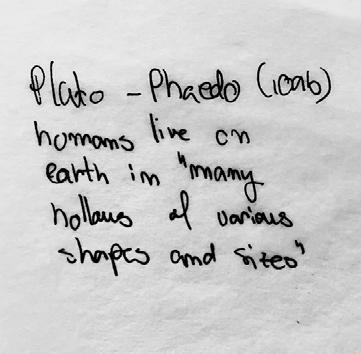 Plato - Phaedo (109b)
humans live on
earth in "many
hollows of various
shapes and sizes"